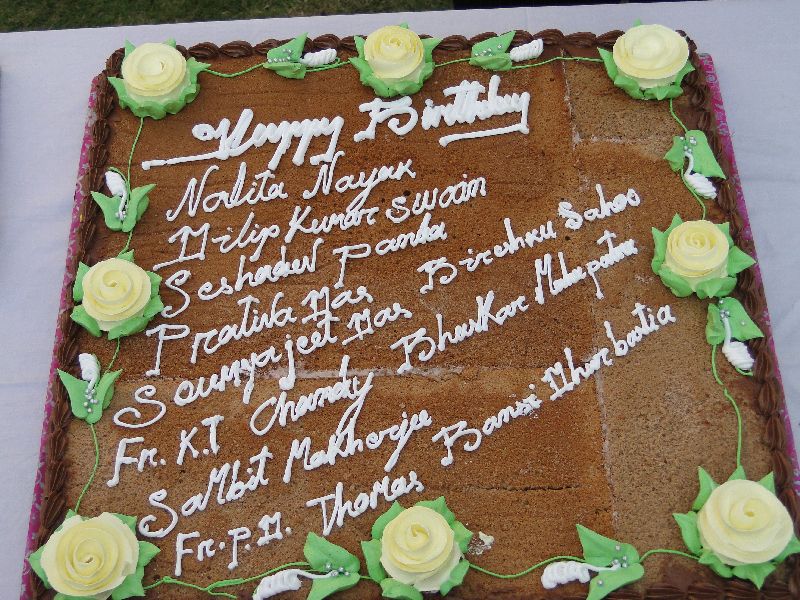 Happy Birthday
Nalita Nayak
Dilip Kumar Swain
Seshadev Panda
Prativa Das Birendra Sahoo
Soumyajeet Das Bhaskar Mahapatra
Fr. K.T Chandy Bansi Dharbatia
Sambit Makherjee
Fr. P.D. Thomas